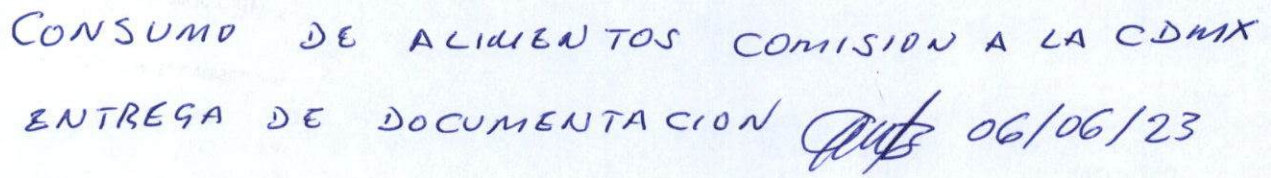 CONSUMO DE ALIMENTOS COMISION A LA CDMX
ENTREGA DE DOCUMENTACION 06/06/23